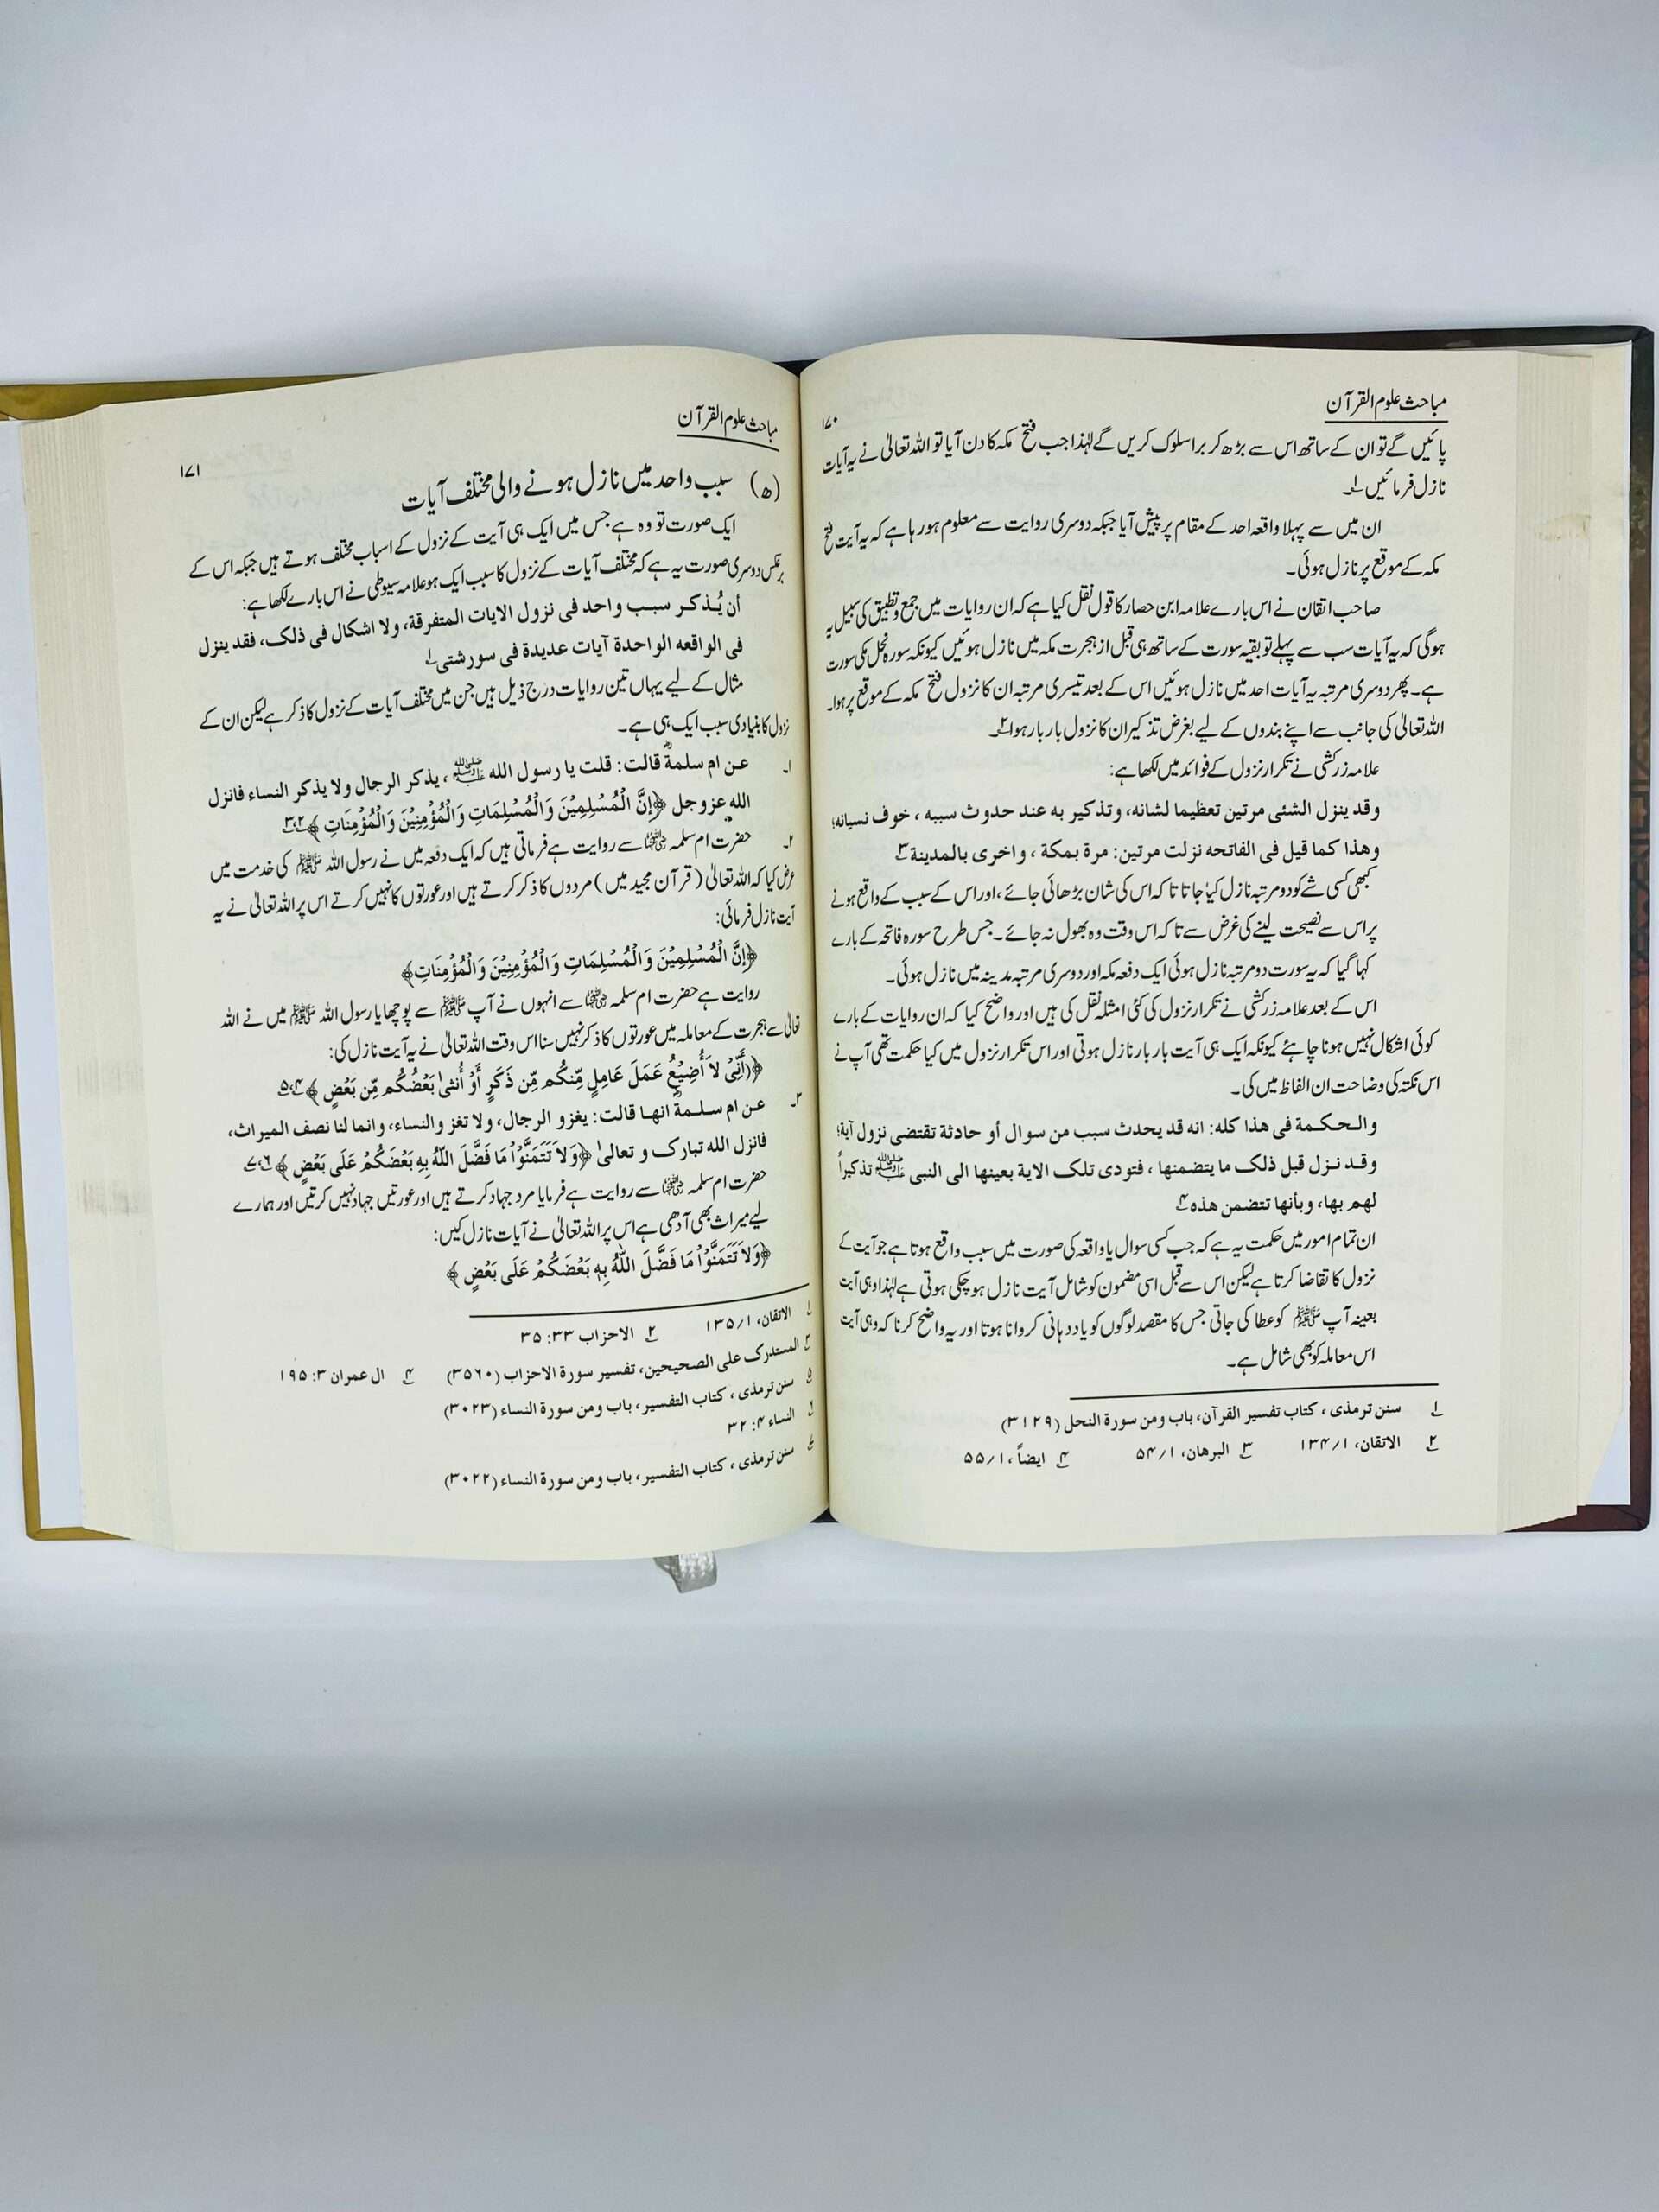 مباحث علوم القرآن
۱۷۰
پائیں گے تو ان کے ساتھ اس سے بڑھ کر برا سلوک کریں گے لہٰذا جب فتح مکہ کا دن آیا تو اللہ تعالیٰ نے یہ آیات
نازل فرمائیں۔۱
ان میں سے پہلا واقعہ احد کے مقام پر پیش آیا جبکہ دوسری روایت سے معلوم ہو رہا ہے کہ یہ آیت فتح
مکہ کے موقع پر نازل ہوئی۔
صاحب اتقان نے اس بارے علامہ ابن حصار کا قول نقل کیا ہے کہ ان روایات میں جمع و تطبیق کی سبیل یہ
ہوگی کہ یہ آیات سب سے پہلے تو بقیہ سورت کے ساتھ ہی قبل از ہجرت مکہ میں نازل ہوئیں کیونکہ سورہ نحل مکی سورت
ہے۔ پھر دوسری مرتبہ یہ آیات احد میں نازل ہوئیں اس کے بعد تیسری مرتبہ ان کا نزول فتح مکہ کے موقع پر ہوا۔
اللہ تعالیٰ کی جانب سے اپنے بندوں کے لیے بغرض تذکیر ان کا نزول بار بار ہوا۔۲
علامہ زرکشی نے تکرار نزول کے فوائد میں لکھا ہے:
وقد ينزل الشئى مرتين تعظيما لشانه، وتذكير به عند حدوث سببه ، خوف نسيانه؛
وهذا كما قيل فى الفاتحه نزلت مرتين: مرة بمكة ، واخرى بالمدينة۳
کبھی کسی شے کو دو مرتبہ نازل کیا جاتا تا کہ اس کی شان بڑھائی جائے، اور اس کے سبب کے واقع ہونے
پر اس سے نصیحت لینے کی غرض سے تا کہ اس وقت وہ بھول نہ جائے۔ جس طرح سورہ فاتحہ کے بارے
کہا گیا کہ یہ سورت دو مرتبہ نازل ہوئی ایک دفعہ مکہ اور دوسری مرتبہ مدینہ میں نازل ہوئی۔
اس کے بعد علامہ زرکشی نے تکرار نزول کی کئی امثلہ نقل کی ہیں اور واضح کیا کہ ان روایات کے بارے
کوئی اشکال نہیں ہونا چاہئے کیونکہ ایک ہی آیت بار بار نازل ہوتی اور اس تکرار نزول میں کیا حکمت تھی آپ نے
اس نکتہ کی وضاحت ان الفاظ میں کی۔
والـحـكـمة فى هذا كله: انه قد يحدث سبب من سوال أو حادثة تقتضى نزول آية؛
وقـد نـزل قبل ذلك ما يتضمنها ، فتودى تلك الاية بعينها الى النبى ﷺ تذكيراً
لهم بها، وبأنها تتضمن هذه۴
ان تمام امور میں حکمت یہ ہے کہ جب کسی سوال یا واقعہ کی صورت میں سبب واقع ہوتا ہے جو آیت کے
نزول کا تقاضا کرتا ہے لیکن اس سے قبل اسی مضمون کو شامل آیت نازل ہو چکی ہوتی ہے لہٰذا وہی آیت
بعینہ آپ ﷺ کو عطا کی جاتی جس کا مقصد لوگوں کو یاد دہانی کروانا ہوتا اور یہ واضح کرنا کہ وہی آیت
اس معاملہ کو بھی شامل ہے۔
۱ سنن ترمذی ، کتاب تفسیر القرآن، باب ومن سورة النحل (۳۱۲۹)
۲ الاتقان، ۱/۱۳۴ ۳ البرهان، ۱/۵۴ ۴ ایضاً ، ۱/۵۵
مباحث علوم القرآن
۱۷۱
(ھ) سبب واحد میں نازل ہونے والی مختلف آیات
ایک صورت تو وہ ہے جس میں ایک ہی آیت کے نزول کے اسباب مختلف ہوتے ہیں جبکہ اس کے
برعکس دوسری صورت یہ ہے کہ مختلف آیات کے نزول کا سبب ایک ہو علامہ سیوطی نے اس بارے لکھا ہے:
أن يُذكر سبب واحد فى نزول الايات المتفرقة، ولا اشكال فى ذلك، فقد ينزل
فى الواقعه الواحدة آيات عديدة فى سور شتى۱
مثال کے لیے یہاں تین روایات درج ذیل ہیں جن میں مختلف آیات کے نزول کا ذکر ہے لیکن ان کے
نزول کا بنیادی سبب ایک ہی ہے۔
۱۔ عـن ام سلمةؓ قالت: قلت يا رسول الله ﷺ ، يذكر الرجال ولا يذكر النساء فانزل
الله عزوجل ﴿إِنَّ الْمُسْلِمِيْنَ وَالْمُسْلِمَاتِ وَالْمُؤْمِنِيْنَ وَالْمُؤْمِنَاتِ﴾۲،۳
۲۔ حضرت ام سلمہ ؓ سے روایت ہے فرماتی ہیں کہ ایک دفعہ میں نے رسول اللہ ﷺ کی خدمت میں
عرض کیا کہ اللہ تعالیٰ (قرآن مجید میں) مردوں کا ذکر کرتے ہیں اور عورتوں کا نہیں کرتے اس پر اللہ تعالیٰ نے یہ
آیت نازل فرمائی:
﴿إِنَّ الْمُسْلِمِيْنَ وَالْمُسْلِمَاتِ وَالْمُؤْمِنِيْنَ وَالْمُؤْمِنَاتِ﴾
روایت ہے حضرت ام سلمہ ؓ سے انہوں نے آپ ﷺ سے پوچھا یا رسول اللہ ﷺ میں نے اللہ
تعالیٰ سے ہجرت کے معاملہ میں عورتوں کا ذکر نہیں سنا اس وقت اللہ تعالیٰ نے یہ آیت نازل کی:
﴿أَنِّىْ لاَ أُضِيْعُ عَمَلَ عَامِلٍ مِّنكُم مِّن ذَكَرٍ أَوْ أُنثىٰ بَعْضُكُم مِّن بَعْضٍ﴾۴،۵
۳۔ عـن ام سـلـمةؓ انهـا قالت: يغزو الرجال، ولا تغز والنساء، وانما لنا نصف الميراث،
فانزل الله تبارك و تعالىٰ ﴿وَلاَ تَتَمَنَّوْا مَا فَضَّلَ اللّٰهُ بِهٖ بَعْضَكُمْ عَلَى بَعْضٍ﴾۶،۷
حضرت ام سلمہ ؓ سے روایت ہے فرمایا مرد جہاد کرتے ہیں اور عورتیں جہاد نہیں کرتیں اور ہمارے
لیے میراث بھی آدھی ہے اس پر اللہ تعالیٰ نے آیات نازل کیں:
﴿وَلاَ تَتَمَنَّوْا مَا فَضَّلَ اللّٰهُ بِهٖ بَعْضَكُمْ عَلَى بَعْضٍ﴾
۱ الاتقان، ۱/۱۳۵ ۲ الاحزاب ۳۳: ۳۵
۳ المستدرك على الصحيحين، تفسير سورة الاحزاب (۳۵۶۰) ۴ ال عمران ۳: ۱۹۵
۵ سنن ترمذی ، کتاب التفسیر، باب ومن سورة النساء (۳۰۲۳)
۶ النساء ۴: ۳۲
۷ سنن ترمذی ، کتاب التفسیر، باب ومن سورة النساء (۳۰۲۲)